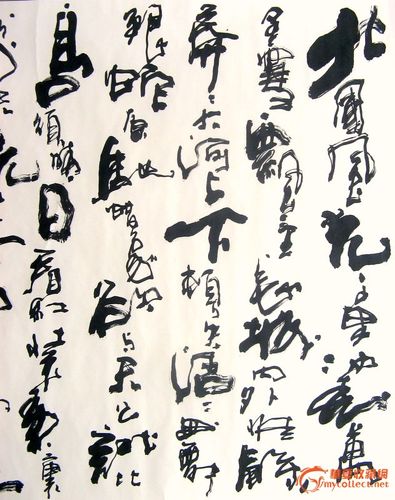 北國風光千里冰封萬
里雪飄望長城內外惟餘
莽莽大河上下頓失滔滔山舞
銀蛇原馳蠟象欲與天公試比
高須晴日看紅裝素裹
mycollect.net